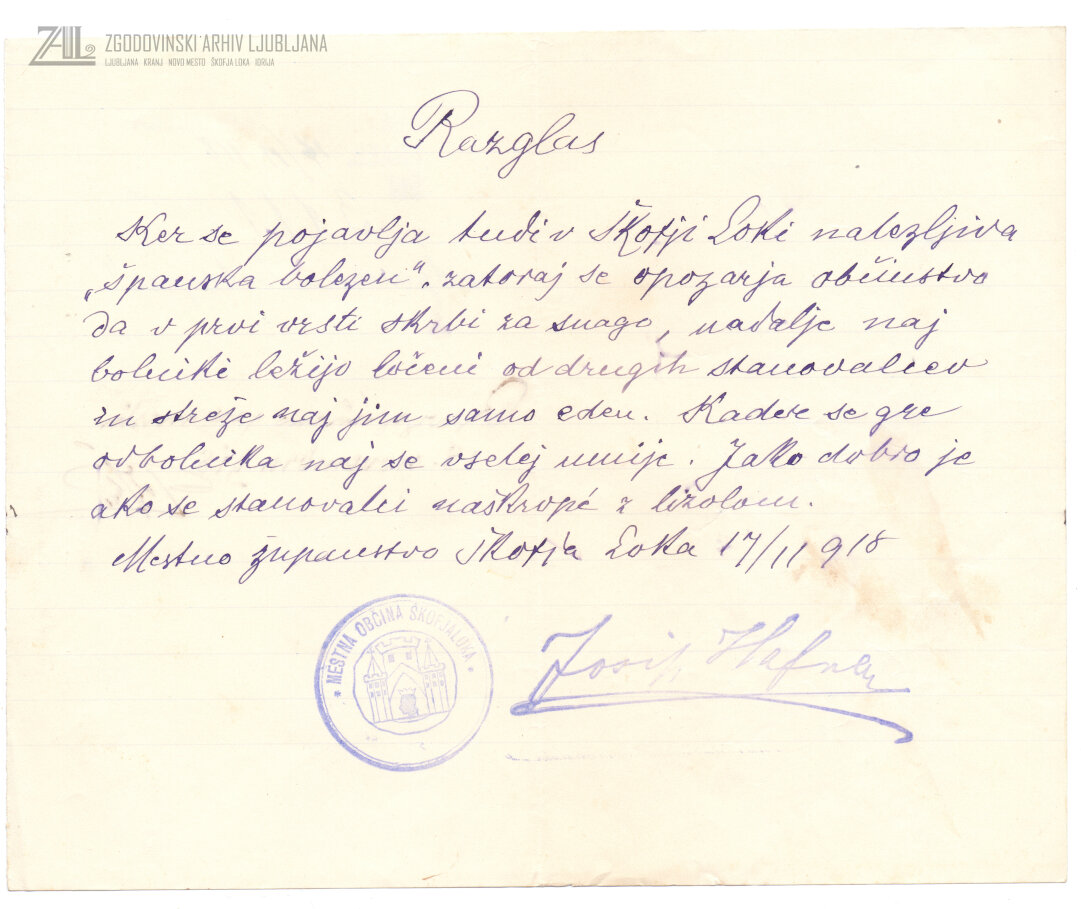 ZAL ZGODOVINSKI ARHIV LJUBLJANA
LJUBLJANA KRANJ NOVO MESTO ŠKOFJA LOKA IDRIJA
Razglas
Ker se pojavlja tudi v Škofji Loki nalezljiva
„španska bolezen“, zatoraj se opozarja občinstvo
da v prvi vrsti skrbi za snago, nadalje naj
bolniki ležijo ločeni od drugih stanovalcev
in streže naj jim samo eden. Kader se gre
od bolnika naj se vselej umije. Jako dobro je
ako se stanovalci naškropé z lizolom.
Mestno županstvo Škofja Loka 17/11 918
* MESTNA OBČINA ŠKOFJALOKA *
Josip Hafner